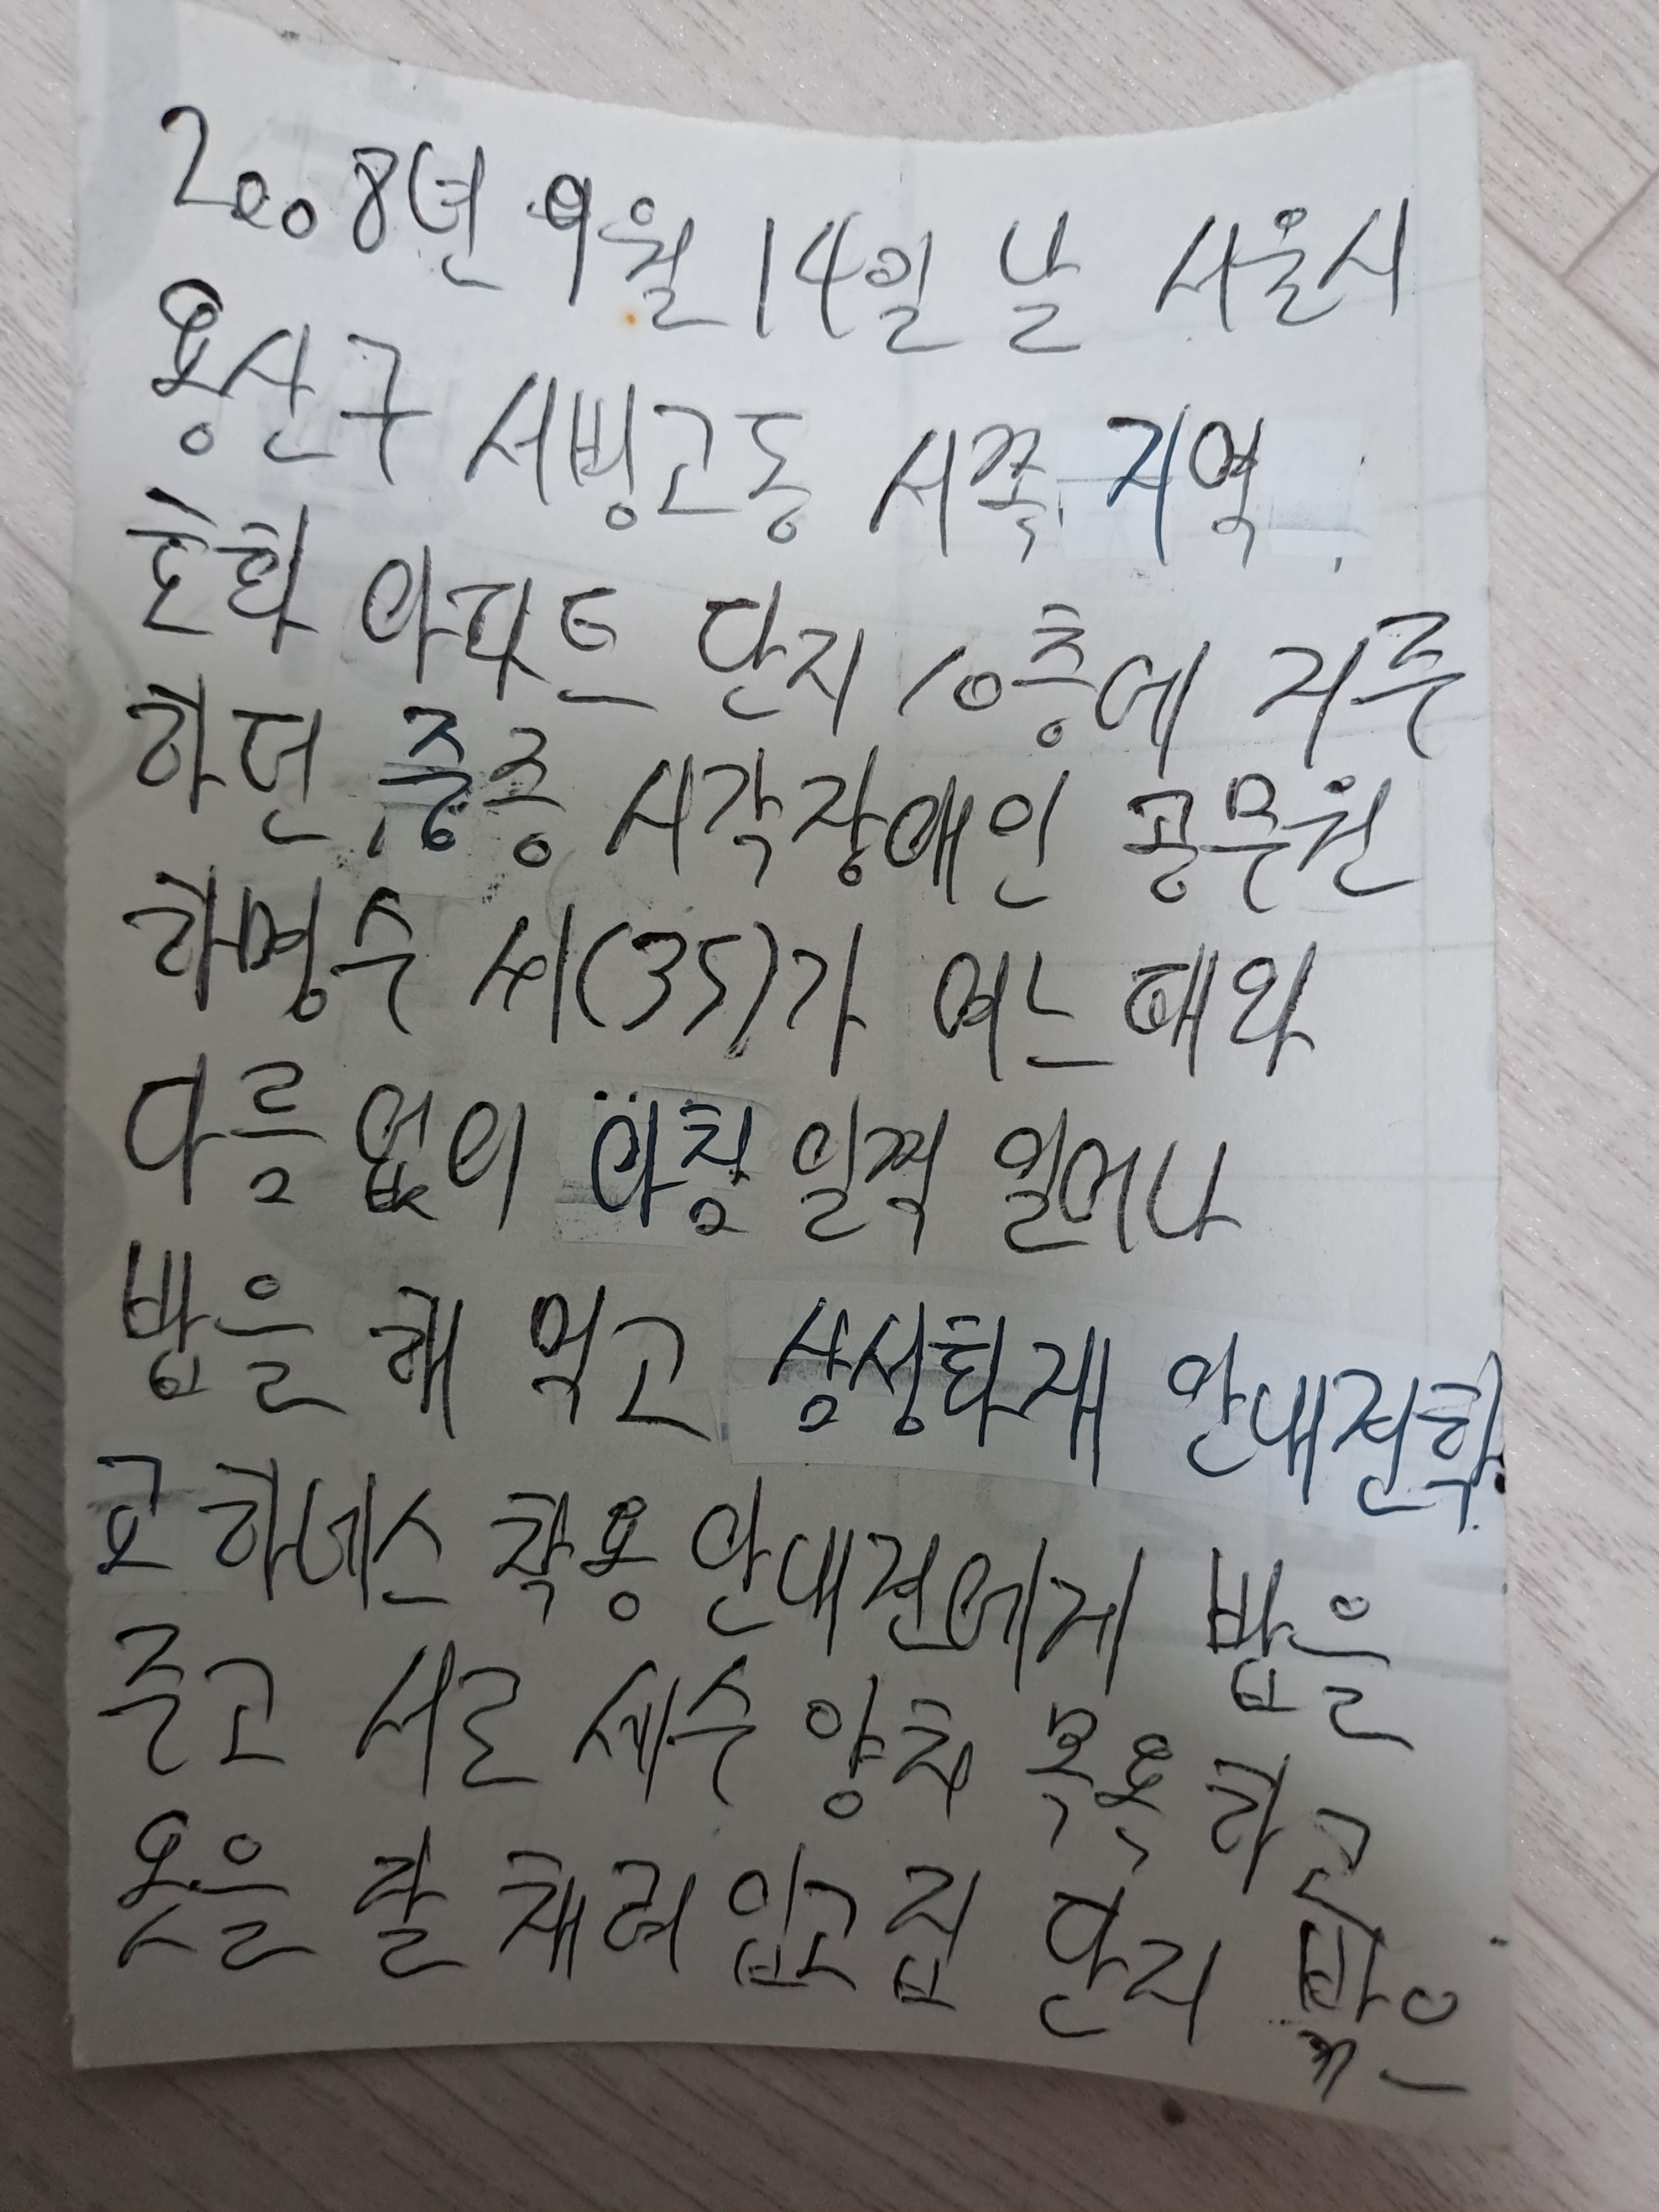 2008년 9월 14일 날 서울시
용산구 서빙고동 서쪽 지역
아파트 단지 10층에 거주
하던 중증 시각장애인 공무원
하명수 씨(35)가 여느 때와
다름없이 아침 일찍 일어나
밥을 해 먹고 삼성화재 안내견학
교 하네스 착용 안내견에게 밥을
주고 서로 세수 양치 목욕하고
옷을 잘 채려 입고 집 단지 밖은